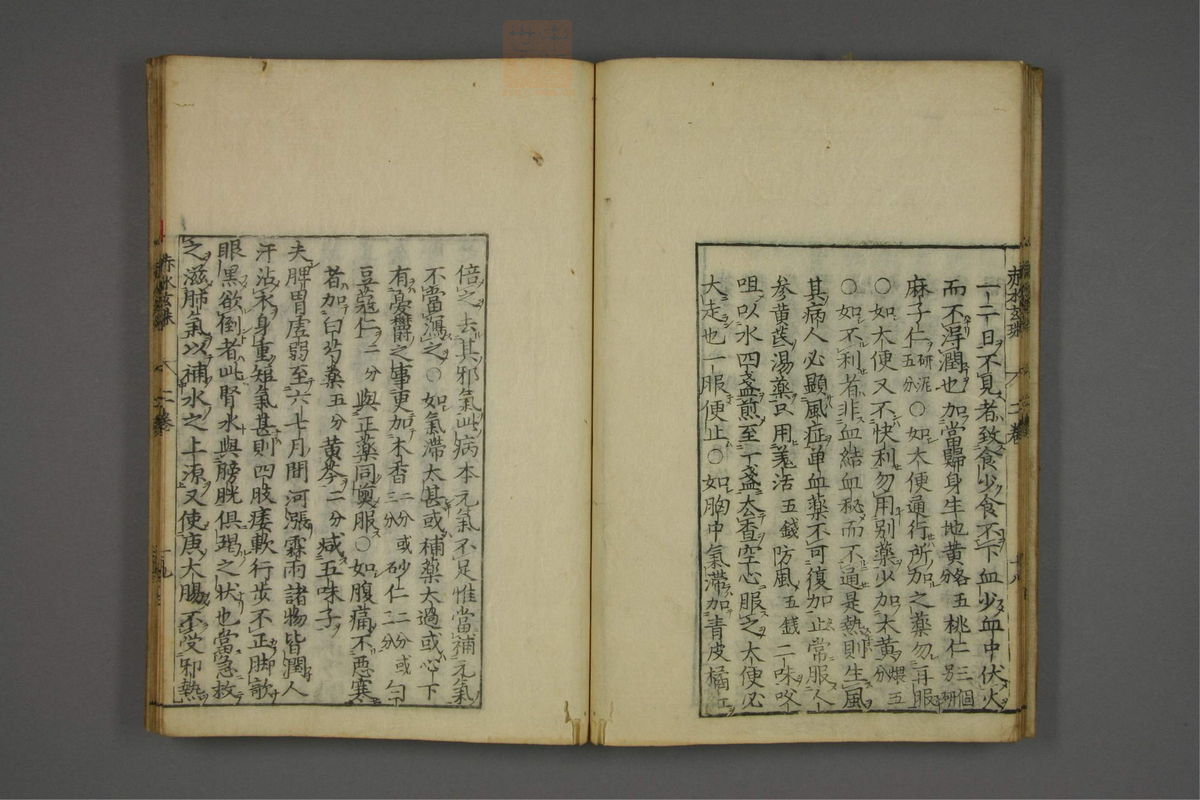 赤水玄珠 二卷 十八
一二日不見者致食少食不下血少血中伏火
而不得潤也加當歸身生地黃各五分桃仁三個別研
麻子仁五分研泥○如大便通行所加之藥勿再服
○如大便又不快利勿用别藥少加大黃煨五分
○如不利者非血結血秘而不通是熱則生風
其病人必顯風症单血藥不可復加止常服人
參黃芪湯藥只用羌活五錢防風五錢二味㕮
咀以水四盞煎至一盞去査空心服之大便必
大走也一服便止○如胸中氣滯加青皮橘紅
倍之去其邪氣此病本元氣不足惟當補元氣
不當瀉之○如氣滯太甚或補藥太過或心下
有憂欝之事更加木香二分三分或砂仁二分三分或白
豆蔲仁二分與正藥同煎服○如腹痛不惡寒
者加白芍藥五分黃芩二分减五味子
夫脾胃虛弱至六七月間河漲霖雨諸物皆潤人
汗沾衣身重短氣甚則四肢痿軟行步不正脚欹
眼黑欲倒者此腎水與膀胱俱竭之状也當急救
之滋肺氣以補水之上源又使庚大腸不受邪熱
赤水玄珠 二卷 十九